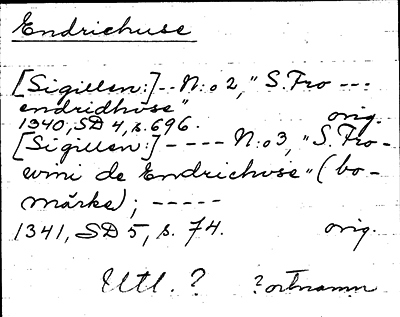 Endrichuse
[Sigillen:]--N:o 2, "S. Fro ---
endridhose"
1340, SD 4, s. 696. orig.
[Sigillen:] ---- N:o 3, "S. Fro-
wini de Endrichose" (bo-
märke); -----
1341, SD 5, s. 74. orig.
Utl. ? ?ortnamn